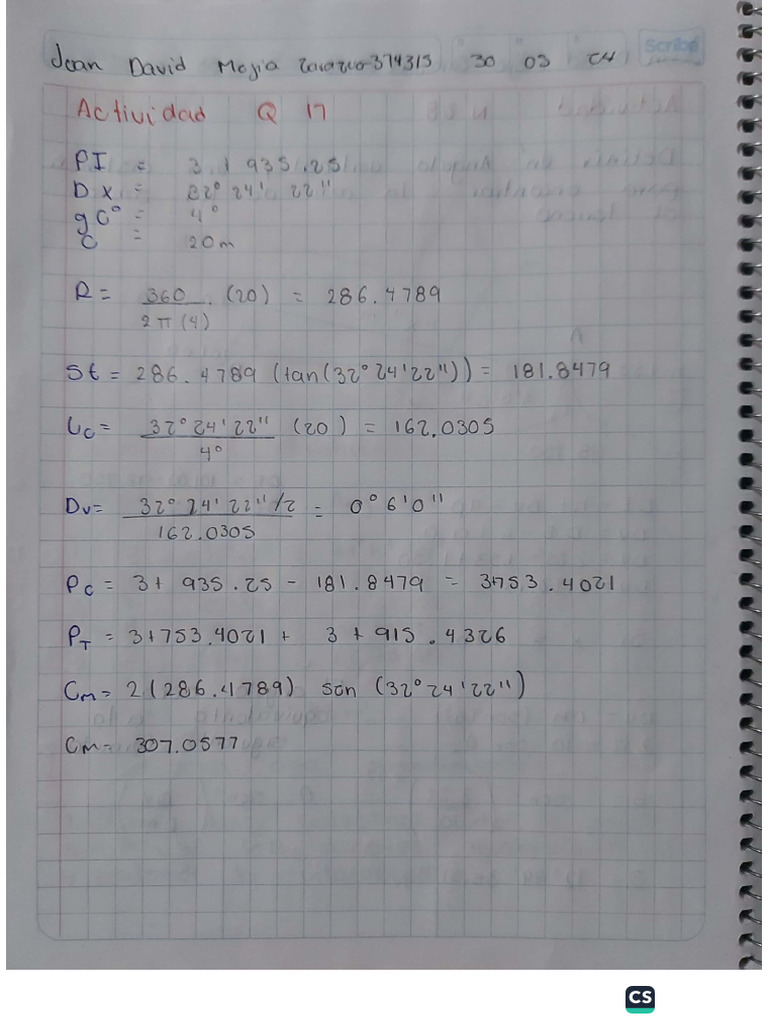 Joan David Mejia 374315 30 03 24
Scribe
Actividad Q 17
PI = 3 + 935.25
Dx = 32° 24' 22"
gC° = 4°
C = 20m
R = 360 / 2π(4) . (20) = 286.4789
St = 286.4789 (tan(32° 24' 22")) = 181.8479
Lc = 32° 24' 22" / 4° (20) = 162.0305
Dv = 32° 24' 22"/2 / 162.0305 = 0° 6' 0"
Pc = 3 + 935.25 - 181.8479 = 3+753.4021
PT = 3+753.4021 + 3 + 915.4326
Cm = 2(286.4789) sen (32° 24' 22")
Cm = 307.0577
CS